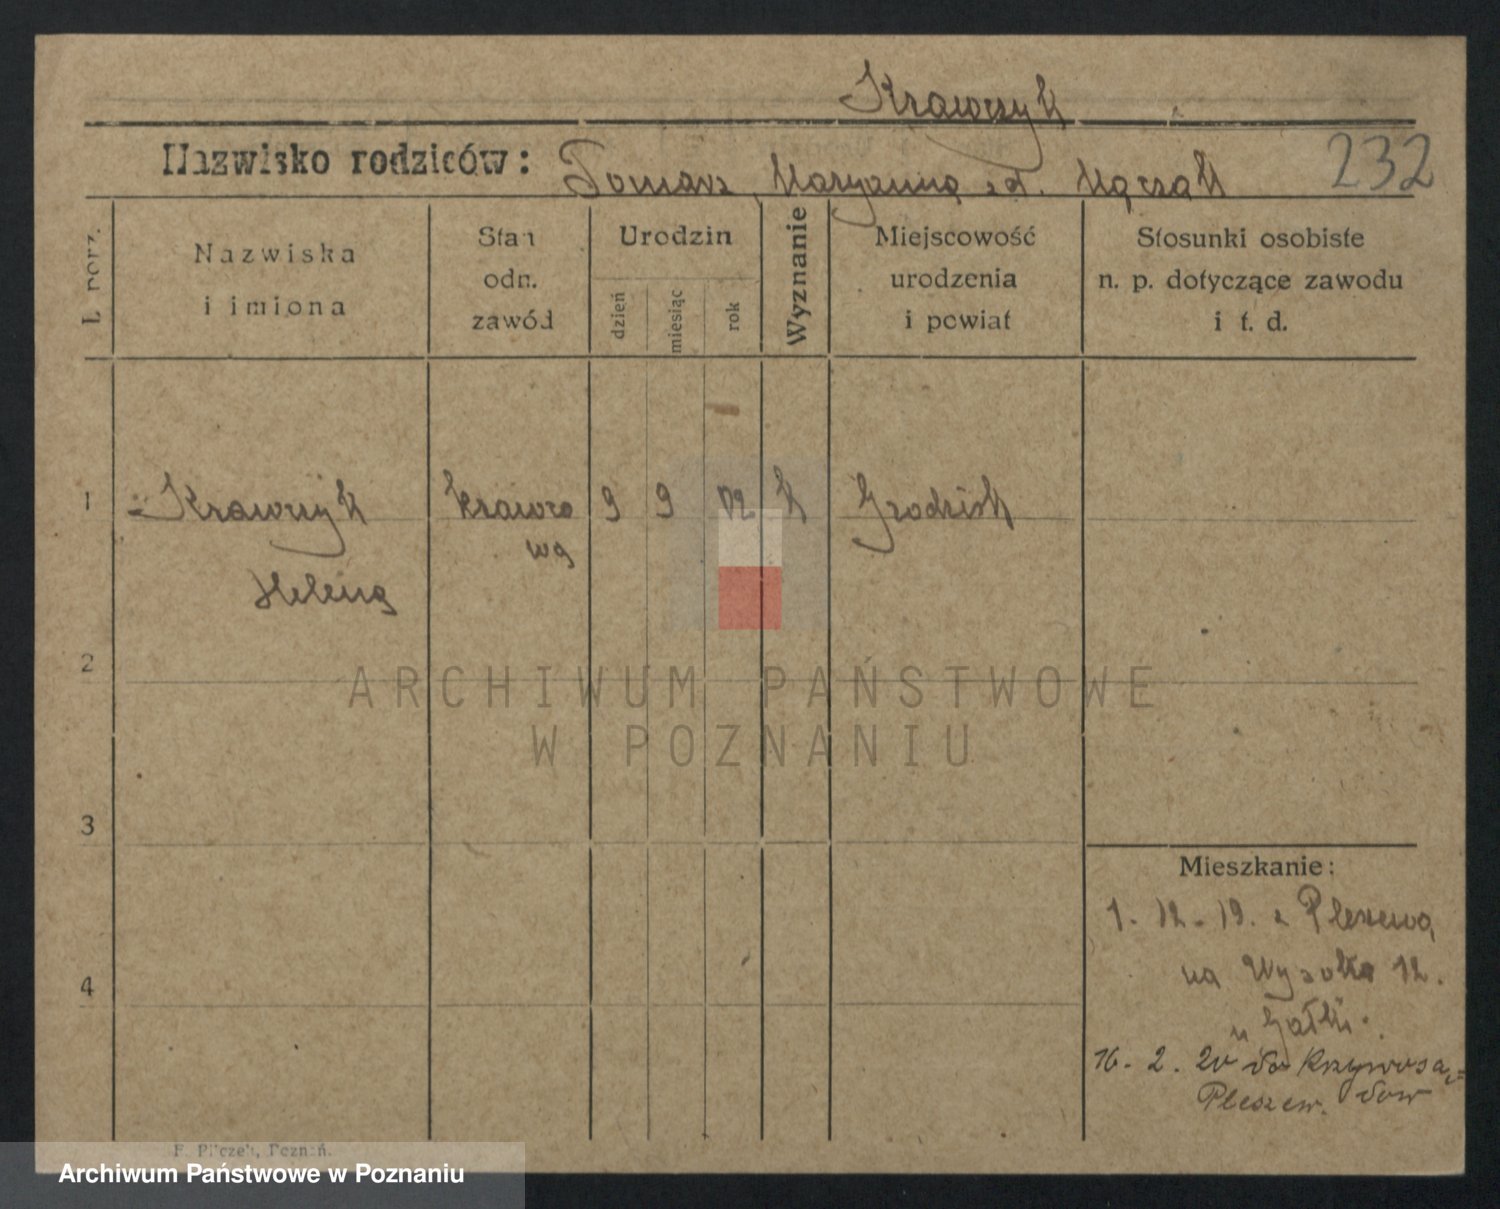 Krawczyk
Nazwisko rodziców: Tomasz, Maryanna zd. Mączak 232
L. porz.
Nazwiska i imiona
Stan odn. zawód
Urodzin
dzień
miesiąc
rok
Wyznanie
Miejscowość urodzenia i powiat
Stosunki osobiste n. p. dotyczące zawodu i t. d.
1 Krawczyk krawco 9 9 02 k Grodzisk
wa
Helena
2
ARCHIWUM PAŃSTWOWE
W POZNANIU
3
Mieszkanie:
1. 12. 19. z Pleszewa
4
na Wysoka 12.
u
16. 2. 20 do Krzywosą=
Pleszew. dow
F. Pilczek, Poznań.
Archiwum Państwowe w Poznaniu